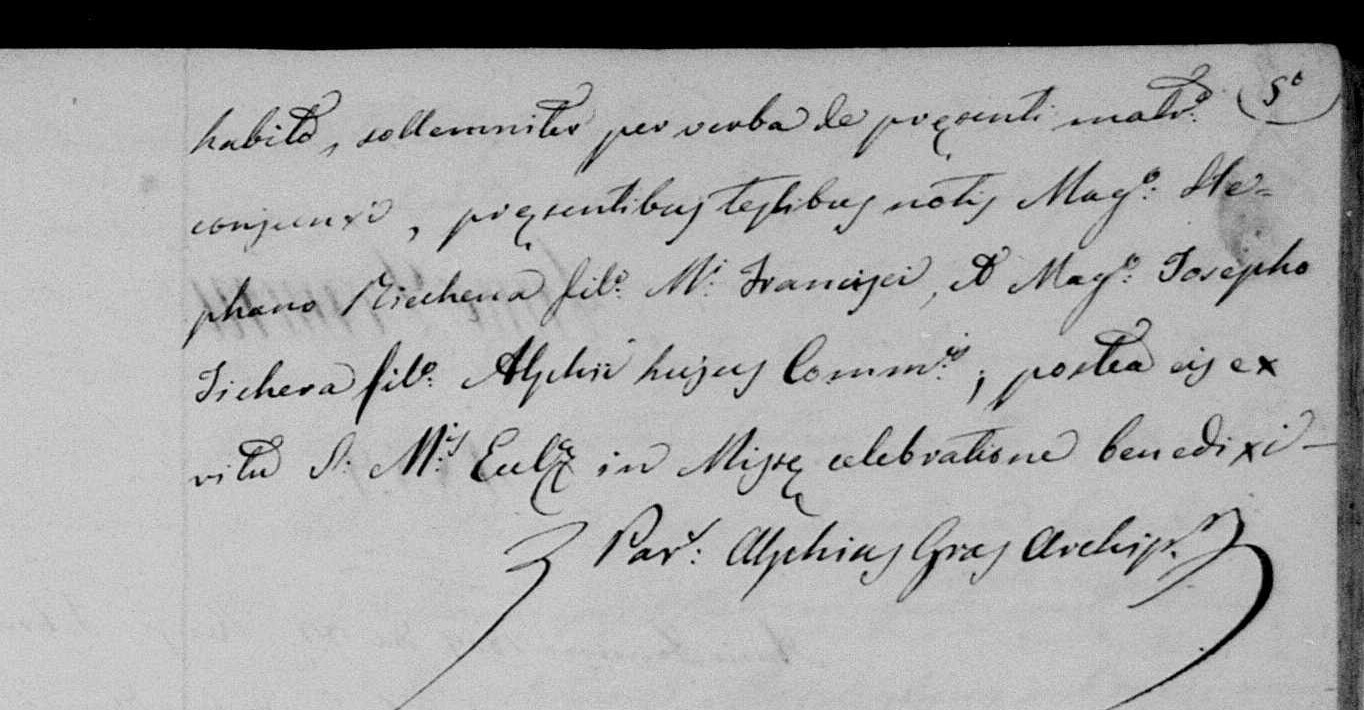 habito, sollemniter per verba de pręsenti matr.º 5º
conjunxi, pręsentibus testibus notis Mag.º Ste=
phano Riechena fil.º M.i Francisci, et Mag.º Josepho
Fichera fil.º Alphii hujus Comm.is; postea eis ex
ritu S. M.is Eccl.ę in Missę celebratione benedixi –
Par.s Alphius Gras Archip.r